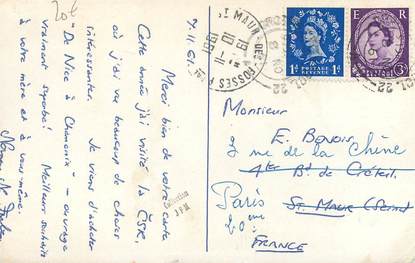 20€
7.11.61.
Merci bien de votre carte
Cette année j'ai visité la ČSR,
où j'ai vu beaucoup de choses
intéressantes. Je viens d'acheter
"De Nice à Chamonix" - ouvrage
vraiment superbe! Meilleurs souhaits
à votre mère et à vous-même.
Collection
JPM
ST MAUR DES FOSSÉS
1961
E R
1D POSTAGE REVENUE 1D
POSTAGE REVENUE 3D
22
NOV
Monsieur
E. Bonvois
7 rue de la Chine
4ter Bd. de Créteil
Paris
20ème
St. Maur (Seine)
FRANCE